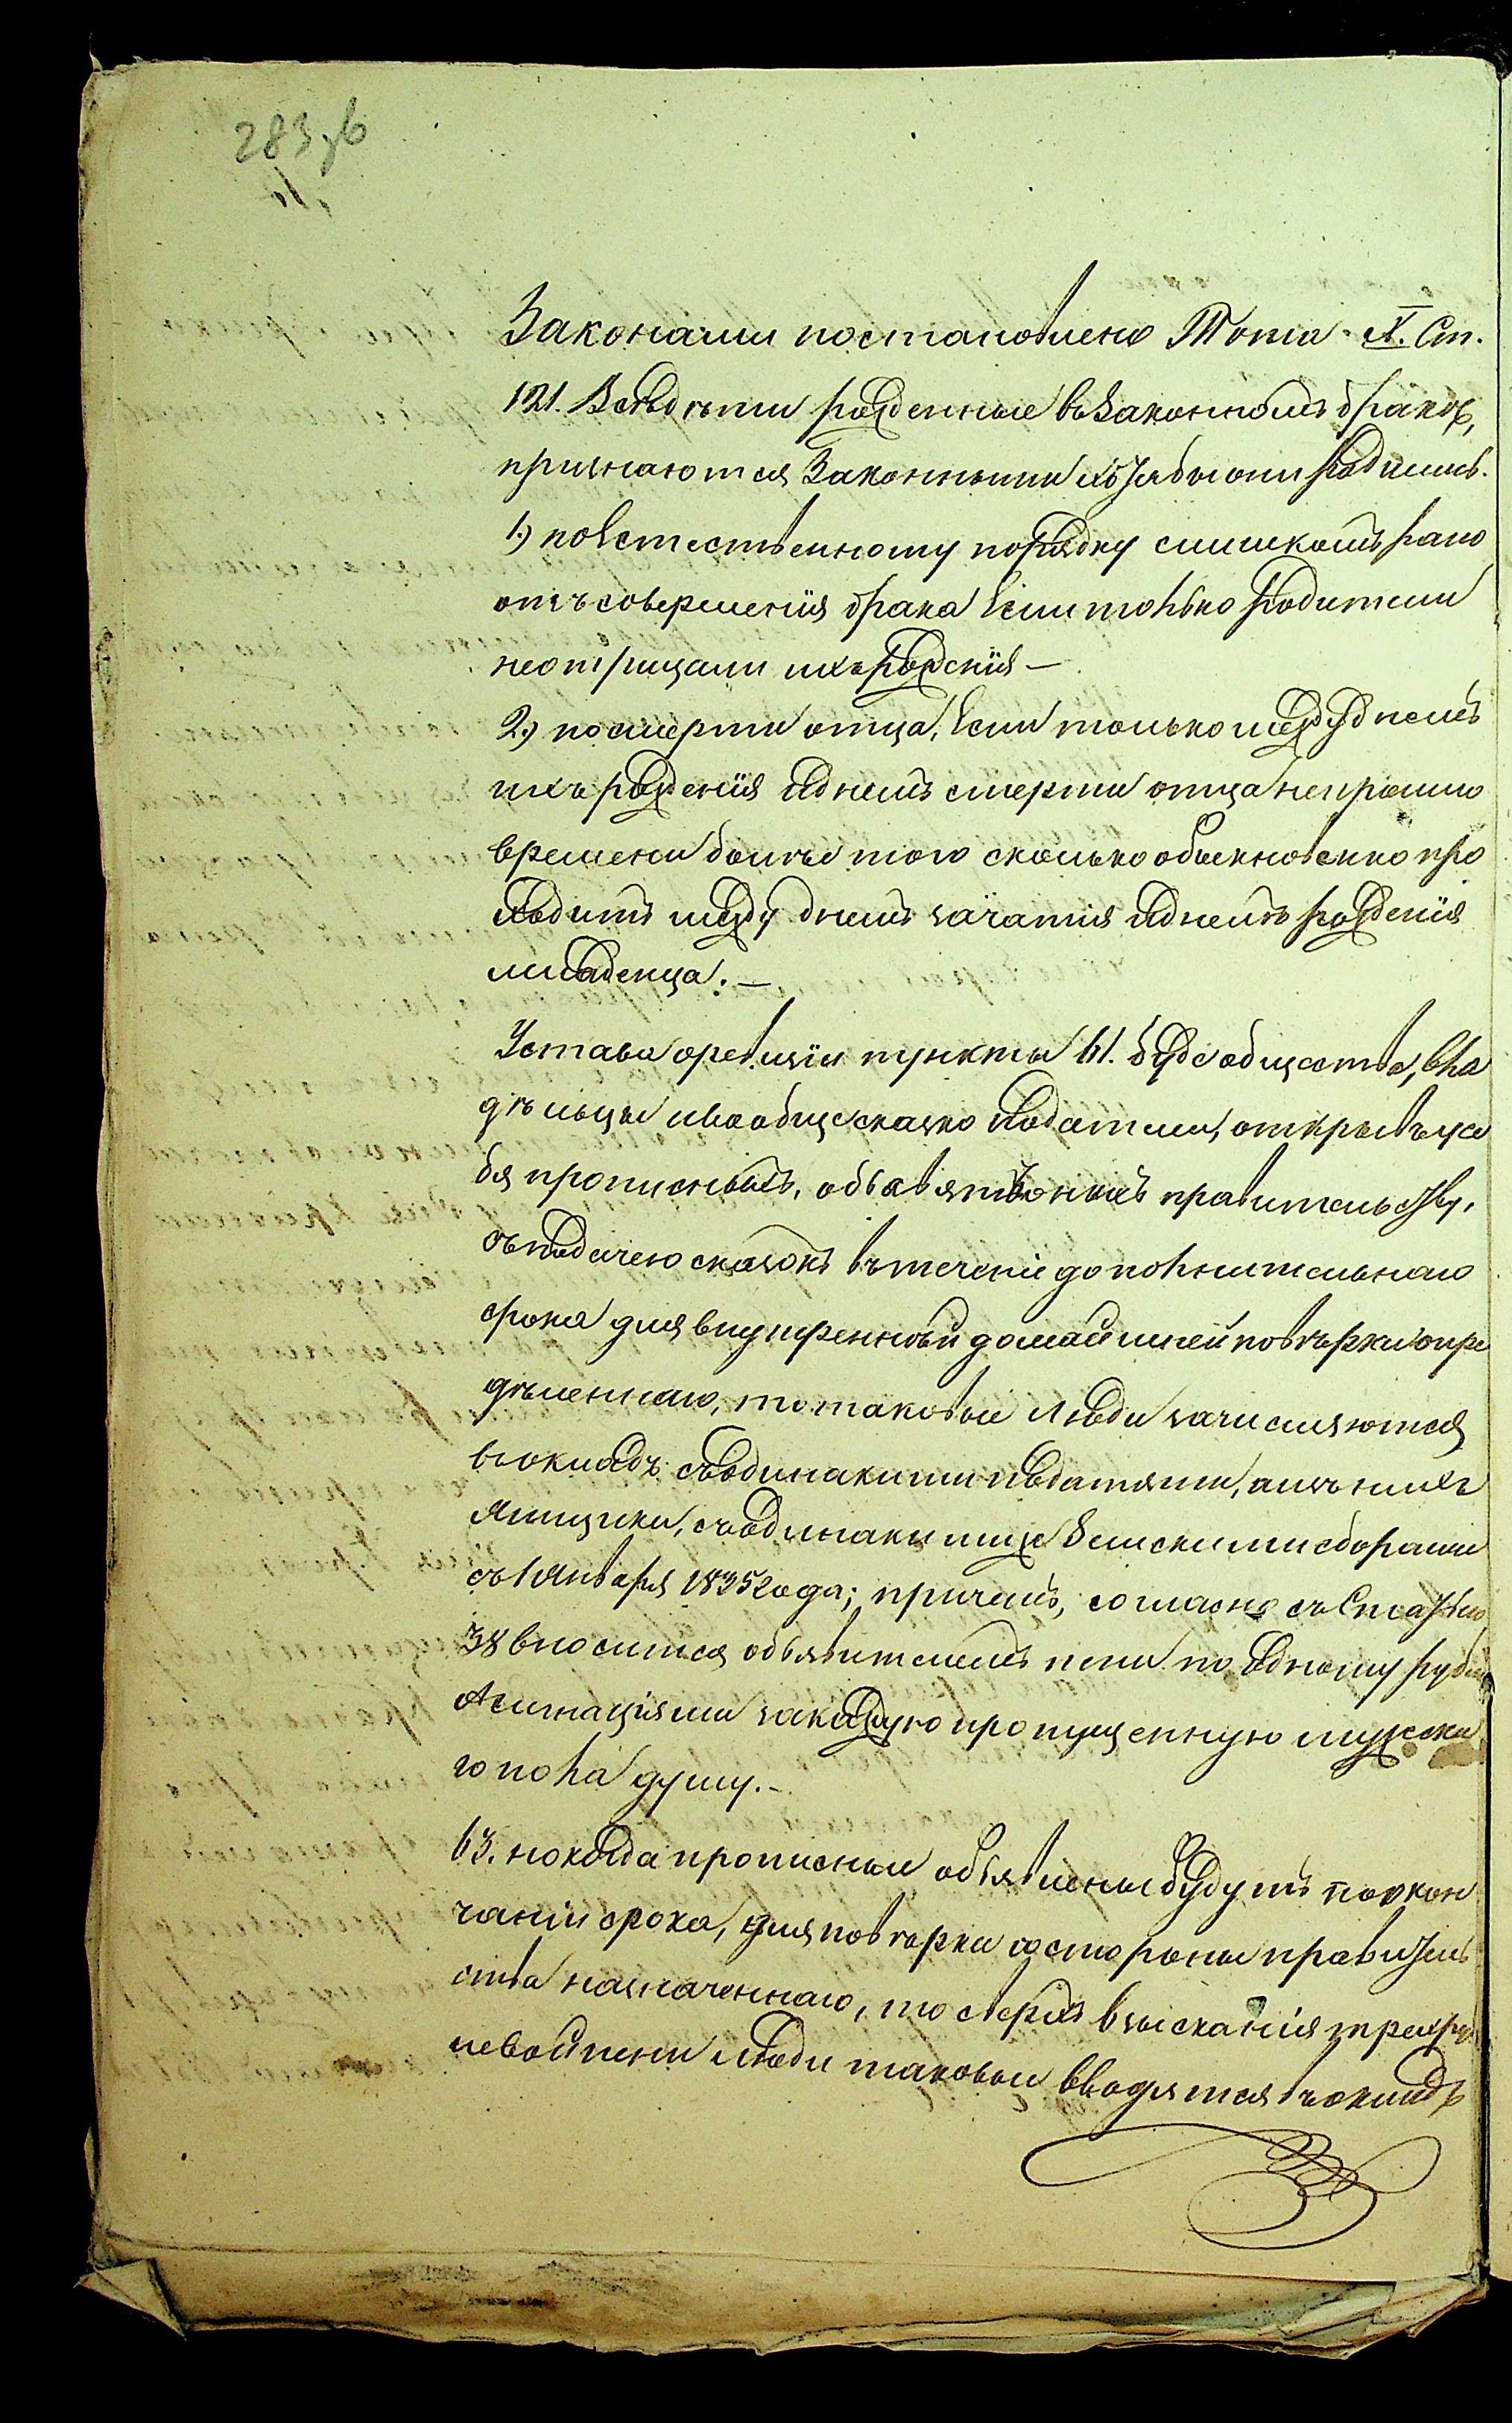 283
Законами постановлено Тома X. Ст.
121. Всѣ дѣти рожденные въ Законномъ бракѣ,
признаются Законными хотя бы они родились.
1.) по естественному порядку слишкомъ рано
отъ совершенія брака если только родители
не отрицали ихъ рожденія —
2.) по смерти отца, если только между днемъ
ихъ рожденія и днемъ смерти отца не прошло
времени болѣе того сколько обыкновенно про
ходитъ между днемъ зачатія и днемъ рожденія
младенца. —
Устава о ревизіи пункты 61. буде общества, вла
дѣльцы и вообще сказко податели, открывъ у се
бя прописныхъ, объявятъ о нихъ правительству,
съ подачею сказокъ въ теченіе дополнительнаго
срока для внутренной домашней повѣрки опре
дѣленнаго, то таковые люди зачисляются
въ окладъ съ одинакими податями, а изъ нихъ
ямщики, съ одинакими же земскими сборами
съ 1 Января 1835 года; причемъ, согласно съ Статьею
38 вносится объявителемъ пени по одному рублю
Асигнаціями за каждую пропущенную мужска
го пола душу. -
63. но когда прописные объявлены будутъ по окон
чаніи срока, для повѣрки со стороны правитель
ства назначеннаго, то сверхъ взысканія трехру
левой пени люди таковые вводятся въ окладъ